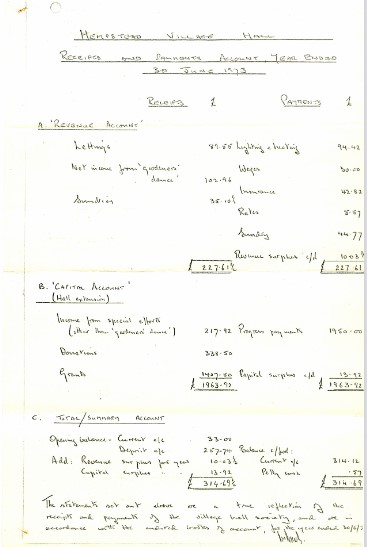 HEMPSTEAD VILLAGE HALL
RECEIPTS AND PAYMENTS ACCOUNT YEAR ENDED
30 JUNE 1973
RECEIPTS £ PAYMENTS £
A. 'REVENUE ACCOUNT'
Lettings Lighting & heating 94.42
Net income from 'gardeners' dance' 102.96 Wages 30.00
Insurance 42.82
Sundries 35.10½
Rates 5.57
Sunday 44.77
Revenue surplus c/d 10.03½
£ 227.61½ £ 227.61
B. 'CAPITAL ACCOUNT'
(Hall extension)
Income from special efforts
(other than 'gardeners' dance') 217.92 Progress payments 1950.00
Donations 338.50
Grants 1407.50 Capital surplus c/d 13.92
£ 1963.92 £ 1963.92
C. TOTAL/SUMMARY ACCOUNT
Opening balance - Current a/c 33.00
Deposit a/c 257.70 Balance c/fwd:
Add: Revenue surplus for year 10.03½ Current a/c 314.12
Capital surplus 13.92 Petty cash .57
£ 314.69½ £ 314.69
The statements set out above are a true reflection of the
receipts and payments of the village hall society, and are in
accordance with the books of account, for the year ended 30/6/